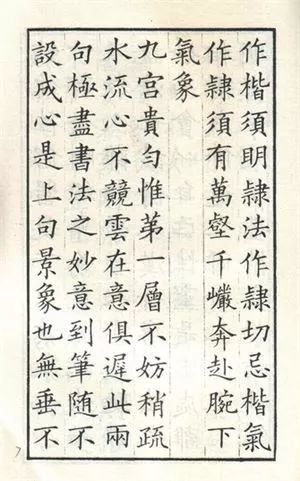 作楷須明隷法作隷切忌楷氣
作隷須有萬壑千巗奔赴腕下
氣象
九宫貴勻惟苐一層不妨稍疏
水流心不競雲在意俱遲此兩
句極盡書法之妙意到筆隨不
設成心是上句景象也無垂不